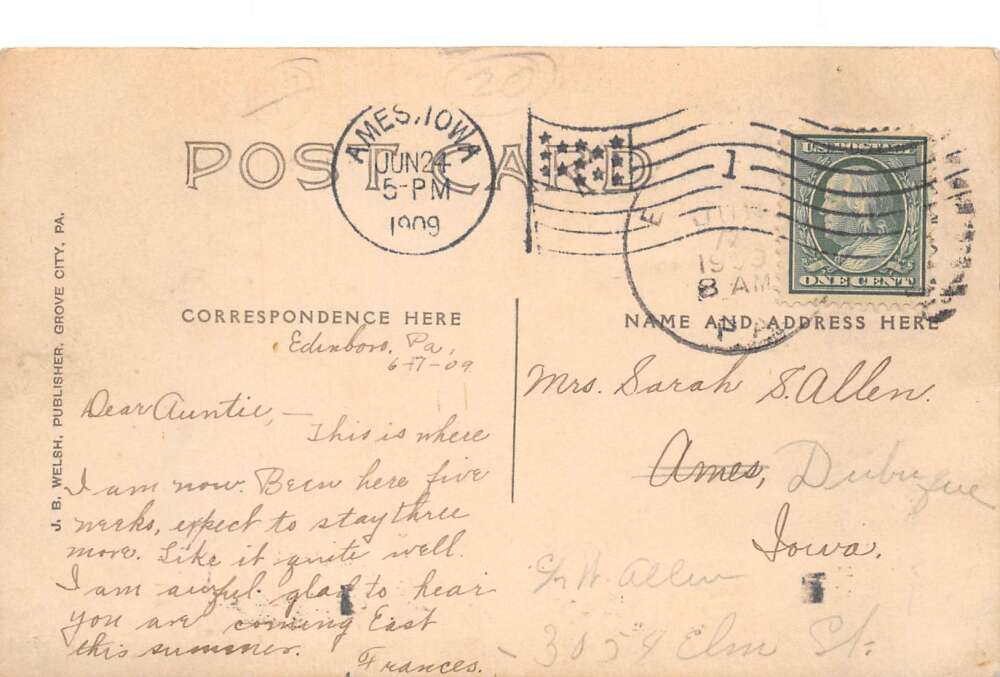 20
POST CARD
AMES, IOWA
JUN 24
5-PM
1909
1
E
JUN
17
1909
8 AM
PA
U.S. POSTAGE
ONE CENT
J. B. WELSH, PUBLISHER, GROVE CITY, PA.
CORRESPONDENCE HERE
Edinboro, Pa,
6-17-09
Dear Auntie, —
This is where
I am now. Been here five
weeks, expect to stay three
more. Like it quite well.
I am awful glad to hear
you are coming East
this summer.
Frances.
NAME AND ADDRESS HERE
Mrs. Sarah S. Allen.
Ames, Dubuque
Iowa.
Allen
3054 Elm St.